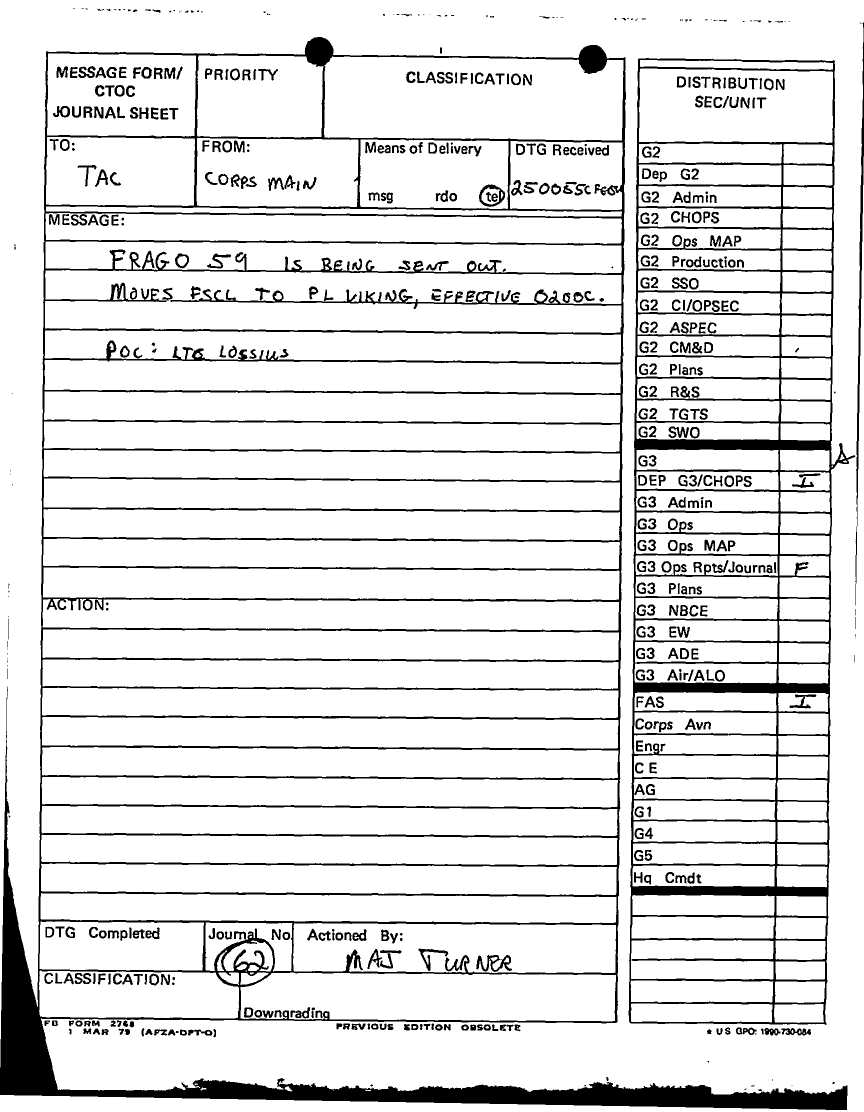 MESSAGE FORM/
CTOC
JOURNAL SHEET
PRIORITY
CLASSIFICATION
TO:
TAC
FROM:
CORPS MAIN
Means of Delivery
msg rdo tel
DTG Received
250055C
MESSAGE:
FRAGO 59 IS BEING SENT OUT.
MOVES FSCL TO PL VIKING, EFFECTIVE 0200C.
POC: LTG LOSSIUS
ACTION:
DTG Completed
Journal No.
62
Actioned By:
MAJ TURNER
CLASSIFICATION:
Downgrading
FB FORM 2768
1 MAR 79 (AFZA-DPT-O)
PREVIOUS EDITION OBSOLETE
DISTRIBUTION
SEC/UNIT
G2
Dep G2
G2 Admin
G2 CHOPS
G2 Ops MAP
G2 Production
G2 SSO
G2 CI/OPSEC
G2 ASPEC
G2 CM&D
G2 Plans
G2 R&S
G2 TGTS
G2 SWO
G3
DEP G3/CHOPS I
G3 Admin
G3 Ops
G3 Ops MAP
G3 Ops Rpts/Journal F
G3 Plans
G3 NBCE
G3 EW
G3 ADE
G3 Air/ALO
FAS I
Corps Avn
Engr
C E
AG
G1
G4
G5
Hq Cmdt
* US GPO: 1990-730-084